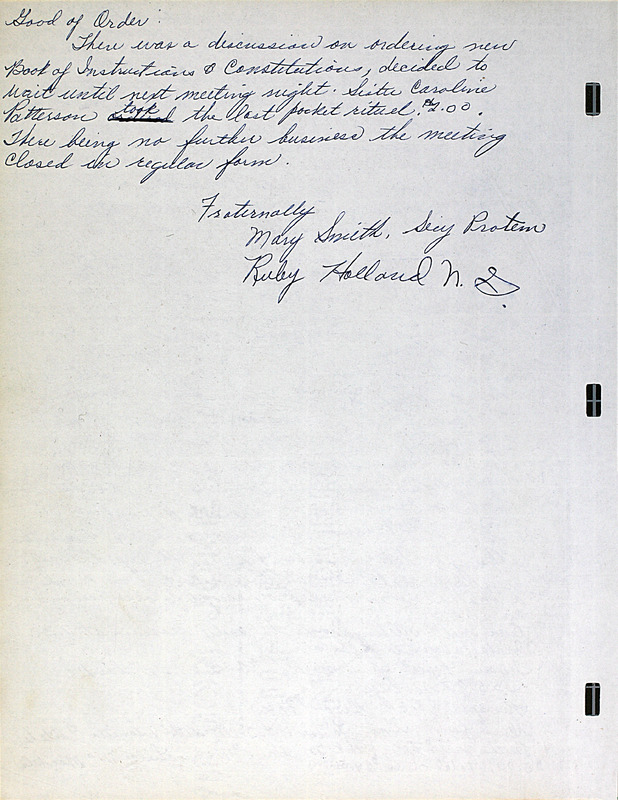 Good of Order:
There was a discussion on ordering new
Book of Instructions & Constitutions, decided to
wait until next meeting night. Sister Caroline
Patterson took the last pocket ritual. $2.00.
There being no further business the meeting
closed in regular form.
Fraternally
Mary Smith, Secy Protem
Ruby Holland N. G.